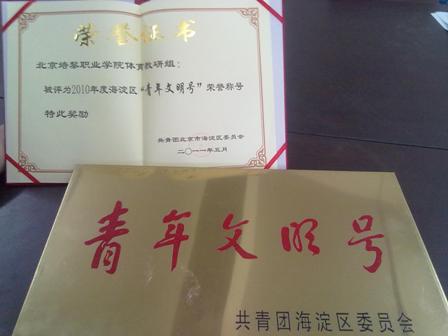 荣誉证书
北京培黎职业学院体育教研组:
被评为2010年度海淀区“青年文明号”荣誉称号
特此奖励
共青团北京市海淀区委员会
二〇一一年五月
青年文明号
共青团海淀区委员会